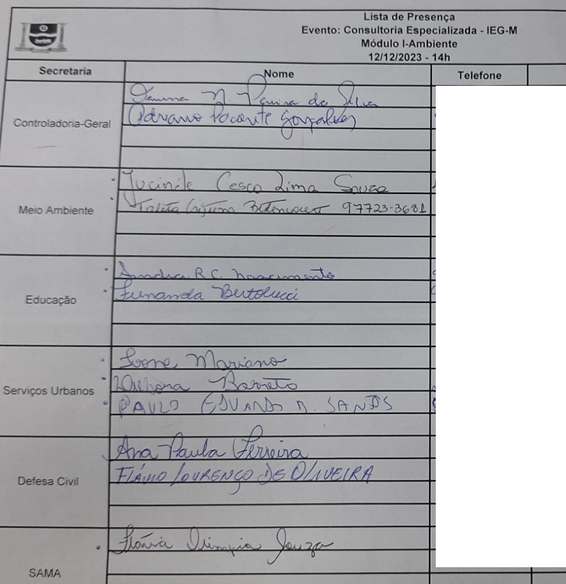 Lista de Presença
Evento: Consultoria Especializada - IEG-M
Módulo I-Ambiente
12/12/2023 - 14h
Secretaria Nome Telefone
Controladoria-Geral
N. Pereira da Silva
Adriano Gonçalves
Meio Ambiente
Jucinile Cesco Lima Souza
Talita 97723-3681
Educação
R.C. Nascimento
Fernanda Bertolucci
Serviços Urbanos
Mariano
Barreto
PAULO EDUARDO A. SANTOS
Defesa Civil
Ana Paula Ferreira
FLÁVIO LOURENÇO DE OLIVEIRA
SAMA
Flávia Olimpia Souza